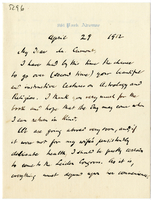 April 29 1912
My dear de Cumont,
I have had by this time the chance
to go over (second time) your beautiful
and instructive Lectures on Astrology and
Religion. I thank you very much for the
book and hope that the day may come when
I can return in kind.
We are going abroad very soon, and if
it were not for my wife's
delicate health I should be pretty certain
to come to the Leiden Congress. As it is,
everything must depend upon her